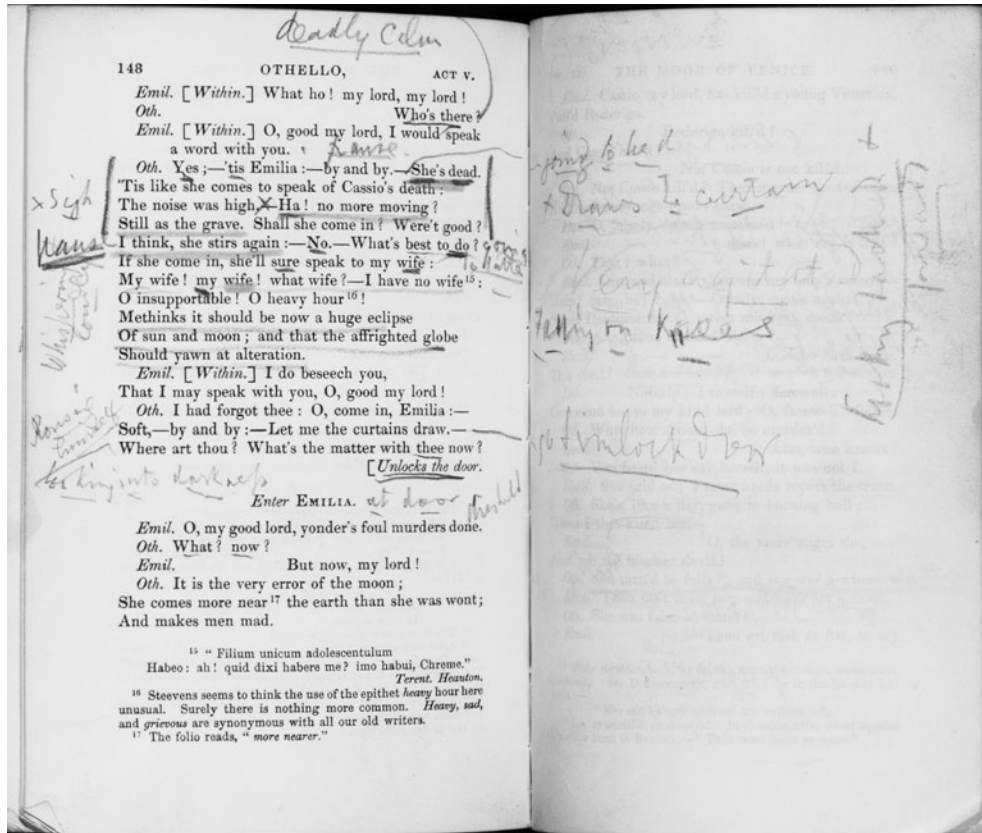 deadly calm
148 OTHELLO, ACT V.
Emil. [Within.] What ho! my lord, my lord!
Oth. Who's there?
Emil. [Within.] O, good my lord, I would speak
a word with you. Pause.
Oth. Yes;—'tis Emilia:—by and by.—She's dead.
'Tis like she comes to speak of Cassio's death:
x Sigh
The noise was high.—Ha! no more moving?
Still as the grave. Shall she come in? Were't good?
Pause
I think, she stirs again:—No.—What's best to do? going
If she come in, she'll sure speak to my wife: to
My wife! my wife! what wife?—I have no wife¹⁵:
Whispering
O insupportable! O heavy hour¹⁶!
Methinks it should be now a huge eclipse
Of sun and moon; and that the affrighted globe
Should yawn at alteration.
Emil. [Within.] I do beseech you,
That I may speak with you, O, good my lord!
Oth. I had forgot thee: O, come in, Emilia:—
Rousing himself
Soft,—by and by:—Let me the curtains draw.—
Where art thou? What's the matter with thee now?
[Unlocks the door.
looking into darkness
Enter EMILIA. at door threshold
Emil. O, my good lord, yonder's foul murders done.
Oth. What? now?
Emil. But now, my lord!
Oth. It is the very error of the moon;
She comes more near¹⁷ the earth than she was wont;
And makes men mad.
¹⁵ " Filium unicum adolescentulum
Habeo: ah! quid dixi habere me? imo habui, Chreme."
Terent. Heauton.
¹⁶ Steevens seems to think the use of the epithet heavy hour here
unusual. Surely there is nothing more common. Heavy, sad,
and grievous are synonymous with all our old writers.
¹⁷ The folio reads, " more nearer."
going to bed
x Draws curtain
Falling on Knees
unlock door